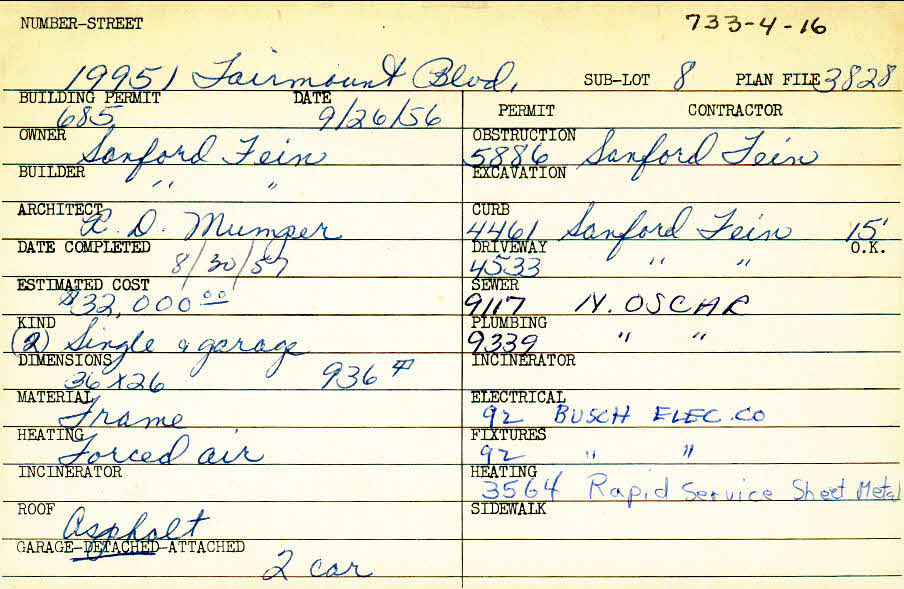 NUMBER-STREET 733-4-16
19951 Fairmount Blvd. SUB-LOT 8 PLAN FILE 3828
BUILDING PERMIT DATE PERMIT CONTRACTOR
685 9/26/56
OWNER Sanford Fein OBSTRUCTION 5886 Sanford Fein
BUILDER " " EXCAVATION
ARCHITECT R. D. Mumper CURB 4461 Sanford Fein 15' O.K.
DATE COMPLETED 8/30/57 DRIVEWAY 4533 " "
ESTIMATED COST $32,000.00 SEWER 9117 N. OSCAR
KIND (2) Single & garage PLUMBING 9339 " "
DIMENSIONS 36 X 26 936 # INCINERATOR
MATERIAL Frame ELECTRICAL 92 BUSCH ELEC. CO
HEATING Forced air FIXTURES 92 " "
INCINERATOR HEATING 3564 Rapid Service Sheet Metal
ROOF Asphalt SIDEWALK
GARAGE-DETACHED-ATTACHED
2 car